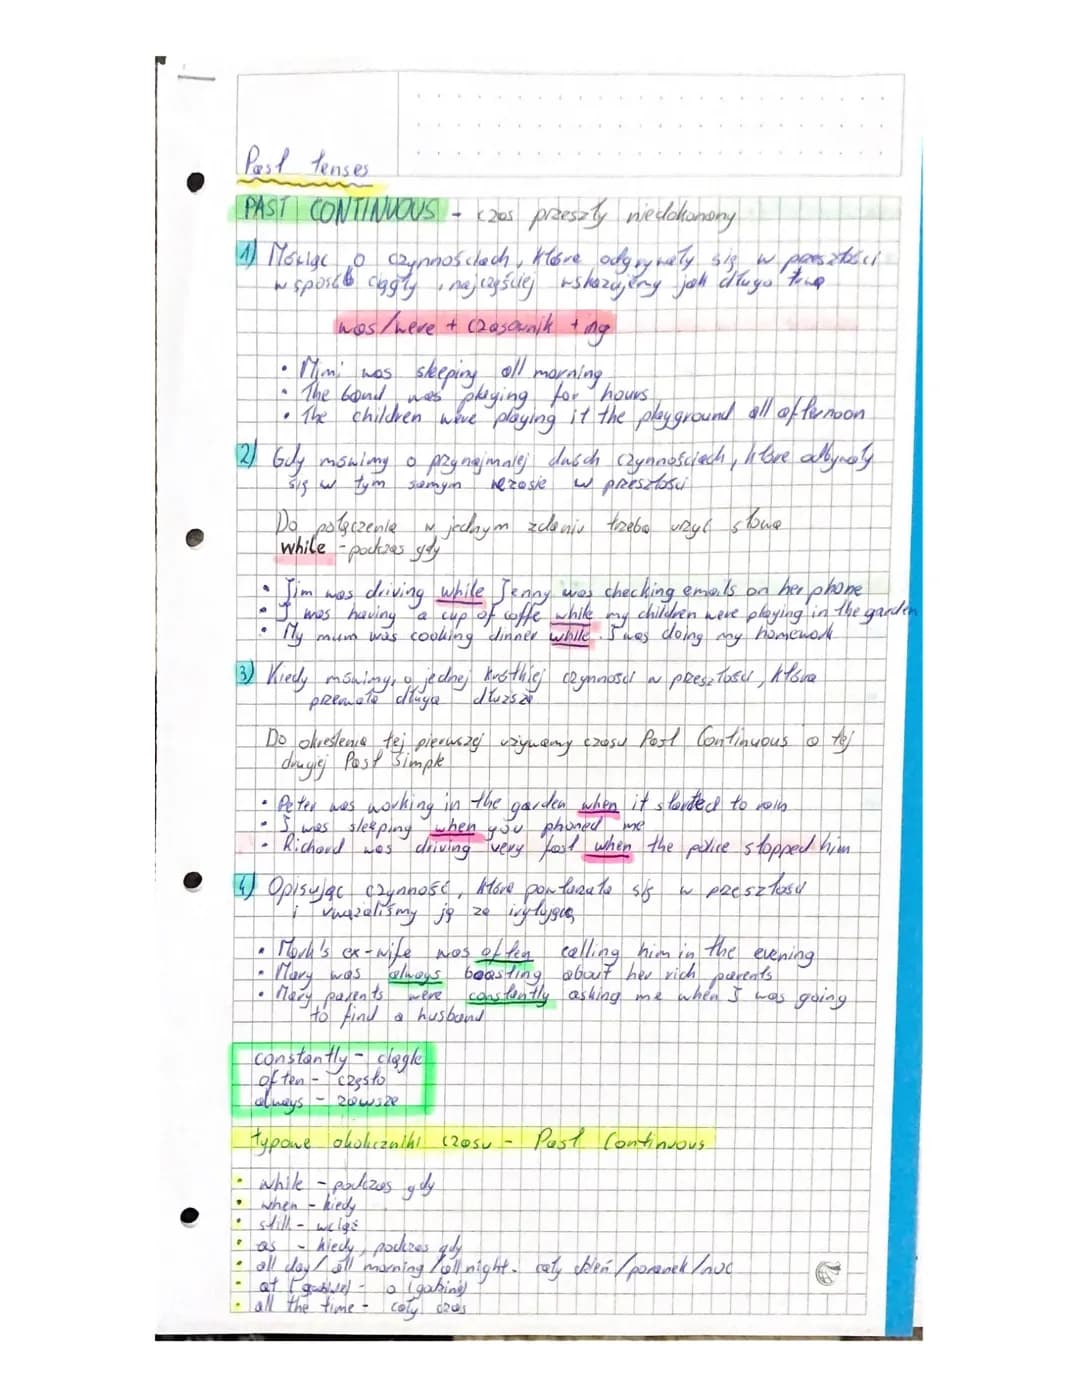 Past tenses
PAST CONTINUOUS - czas przeszły niedokonany
1) Mówiąc o czynnościach, które odgrywały się w przeszłości
w sposób ciągły, najczęściej wskazujemy jak długo trwa
was/were + czasownik + ing
• Mimi was sleeping all morning
• The band was playing for hours
• The children were playing it the playground all afternoon
2) Gdy mówimy o przynajmniej dwóch czynnościach, które odbywały
się w tym samym czasie w przeszłości
Do połączenia w jednym zdaniu trzeba użyć słowa
while - podczas gdy
• Jim was driving while Jenny was checking emails on her phone
• I was having a cup of coffe while my children were playing in the garden
• My mum was cooking dinner while I was doing my homework
3) Kiedy mówimy o jednej krótkiej czynności w przeszłości, która
długa dłuższa
Do określenia tej pierwszej używamy czasu Past Continuous a tej
drugiej Past Simple
• Peter was working in the garden when it started to rain
• I was sleeping when you phoned me
• Richard was driving very fast when the police stopped him
4) Opisując czynność, która powtarzała się w przeszłości
i uważaliśmy ją za irytującą
• Mark's ex-wife was often calling him in the evening
• Mary was always boasting about her rich parents
• Mary parents were constantly asking me when I was going
to find a husband
constantly - ciągle
often - często
always - zawsze
typowe okoliczniki czasu - Past Continuous
• while - podczas gdy
• when - kiedy
• still - wciąż
• as - kiedy, podczas gdy
• all day / all morning / all night - cały dzień/poranek/noc
• at - o (godzinie)
• all the time - cały czas